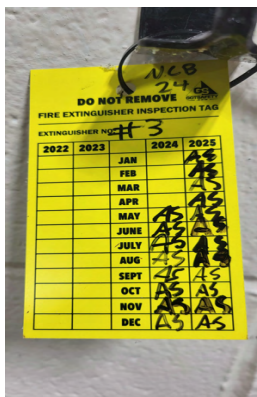 NCB
24
DO NOT REMOVE
FIRE EXTINGUISHER INSPECTION TAG
EXTINGUISHER NO. #3
2022 2023 2024 2025
JAN AS
FEB AS
MAR AS
APR AS
MAY AS AS
JUNE AS AS
JULY AS AS
AUG AS AS
SEPT AS AS
OCT AS AS
NOV AS AS
DEC AS AS